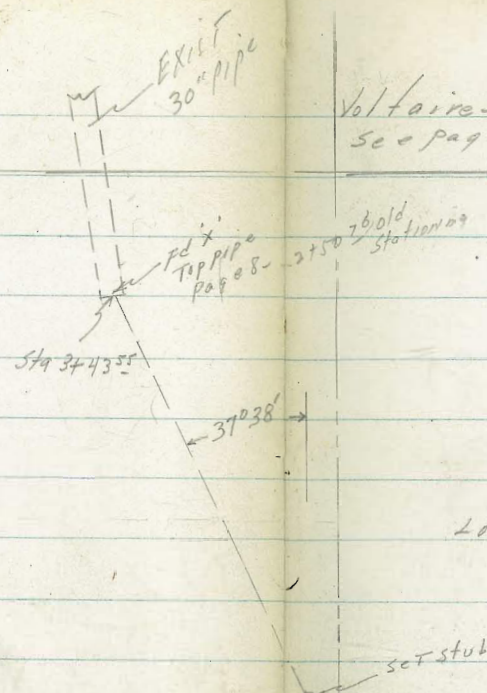 EXIST
30" pipe
Voltaire
See pag
Fd 'X'
Top pipe
page 8 - 2+50 76 old
Stationing
Sta 3+43 55
37°38'
Lo
set stub